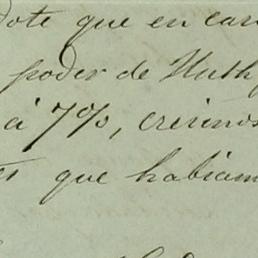 que en
poder de Huth
á 7%, creimos
que habiam